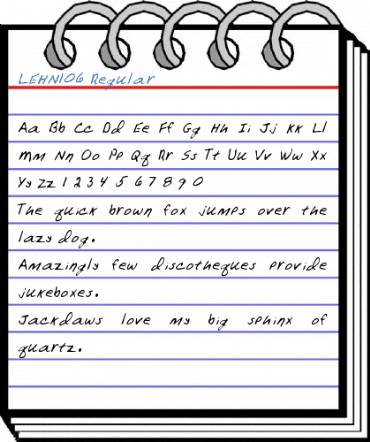 LEHN106 Regular
Aa Bb Cc Dd Ee Ff Gg Hh Ii Jj Kk Ll
Mm Nn Oo Pp Qq Rr Ss Tt Uu Vv Ww Xx
Yy Zz 1 2 3 4 5 6 7 8 9 0
The quick brown fox jumps over the
lazy dog.
Amazingly few discotheques provide
jukeboxes.
Jackdaws love my big sphinx of
quartz.